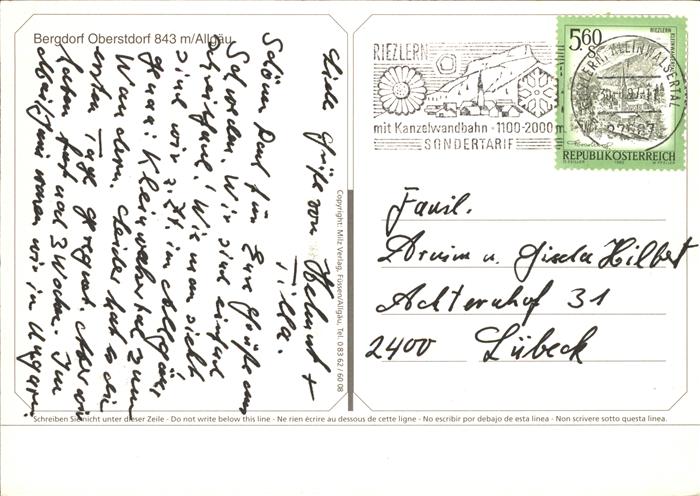 Bergdorf Oberstdorf 843 m/Allgäu
Liebe Grüße von Helmut +
Tilla.
Schönen Dank für Eure Grüße aus
Schweden. Wir sind einfach
schreibfaul! Wie man sieht
sind wir z. Zt. im Allgäu
Kleinwalsertal zum
Wandern. Leider hat es die
ersten Tage geregnet. Aber wir
haben fast noch 3 Wochen. Im
waren wir in Ungarn
Copyright: Milz Verlag, Füssen/Allgäu, Tel. 0 83 62 / 60 08
RIEZLERN
mit Kanzelwandbahn - 1100-2000 m
SONDERTARIF
RIEZLERN, KLEINWALSERTAL
5,60
S
RIEZLERN
KLEINWALSERTAL
REPUBLIK ÖSTERREICH
Famil.
Armin u. Gisela Hilbert
Achternhof 31
2400 Lübeck
Schreiben Sie nicht unter dieser Zeile - Do not write below this line - Ne rien écrire au dessous de cette ligne - No escribir por debajo de esta linea - Non scrivere sotto questa linea.